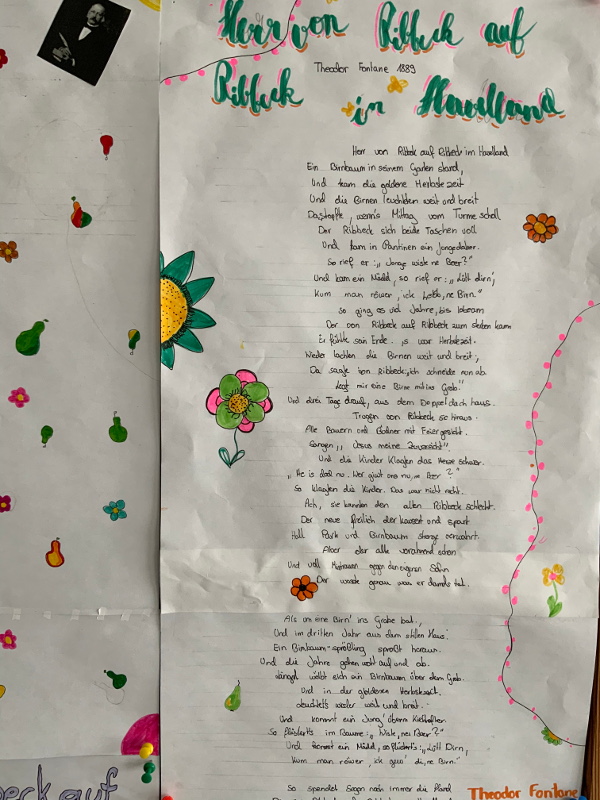 Herr von Ribbeck auf
Ribbeck in Havelland
Theodor Fontane 1889
Herr von Ribbek auf Ribbeck im Havelland
Ein Birnbaum in seinem Garten stand,
Und kam die goldene Herbsteszeit
Und die Birnen leuchteten weit und breit
Da stopfte, wenns Mittag vom Turme scholl
Der Ribbeck sich beide Taschen voll
Und kam in Pantinen ein Junge daher.
So rief er: „Junge wiste ne Beer?"
Und kam ein Mädel, so rief er: „Lütt dirn',
Kum man röwer, ick hebb, ne Birn."
So ging es viel Jahre, bis lobsam
Der von Ribbeck auf Ribbeck zum sterben kam
Er fühlte sein Ende. 's war Herbsteszeit.
Wieder lachten die Birnen weit und breit;
Da sagte von Ribbeck: ich scheide nun ab.
Legt mir eine Birne mit ins Grab."
Und drei Tage drauf, aus dem Doppeldachhaus.
Trugen von Ribbeck sie hinaus.
Alle Bauern und Büdner mit Feiergesicht.
Sangen „Jesus meine Zuversicht".
Und die Kinder klagten das Herze schwer.
„He is dod nu. Wer giwt uns nu, ne Beer?"
So klagten die Kinder. Das war nicht recht.
Ach, sie kannten den alten Ribbeck schlecht.
Der neue freilich der knausert und spart
Hält Park und Birnbaum strenge verwahrt.
Aber der alte vorahnend schon
Und voll Mistrauen gegen den eigenen Sohn
Der wusste genau was er damals tat.
Als um eine Birn' ins Grab bat.,
Und im dritten Jahr aus dem stillen Haus
Ein Birnbaum-sprößling sproßt heraus.
Und die Jahre gehen wohl auf und ab.
Längst wölbt sich ein Birnbaum über dem Grab.
Und in der goldenen Herbstzeit.
leuchtet's wieder weit und breit.
Und kommt ein Jung' übern Kirchhof her
So flüstert's im Baume: „Wiste, ne Beer?"
Und kommt ein Mädel, so flüstert's: „Lütt Dirn,
Kum man röwer, ick gew' di, ne Birn."
So spendet Segen noch immer die Hand
Theodor Fontane
beck auf